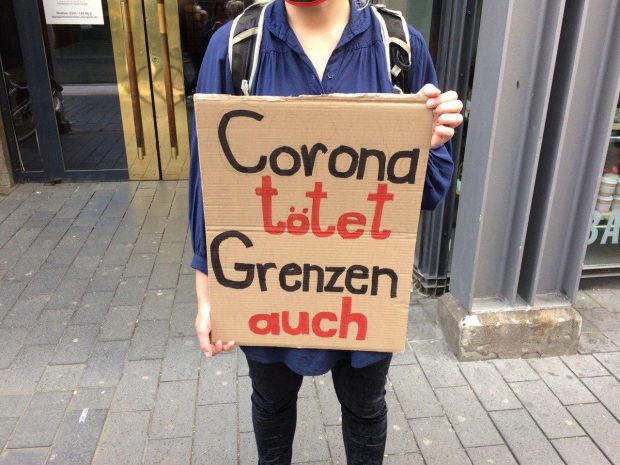 Corona
tötet
Grenzen
auch